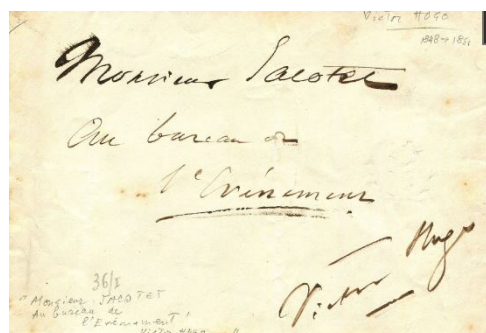 Victor HUGO
1848 → 1851
Monsieur Jacotet
au bureau de
l'Evénement
Victor Hugo
36/I
"Monsieur JACOTET
Au bureau de
l'Evénement"
Victor Hugo "